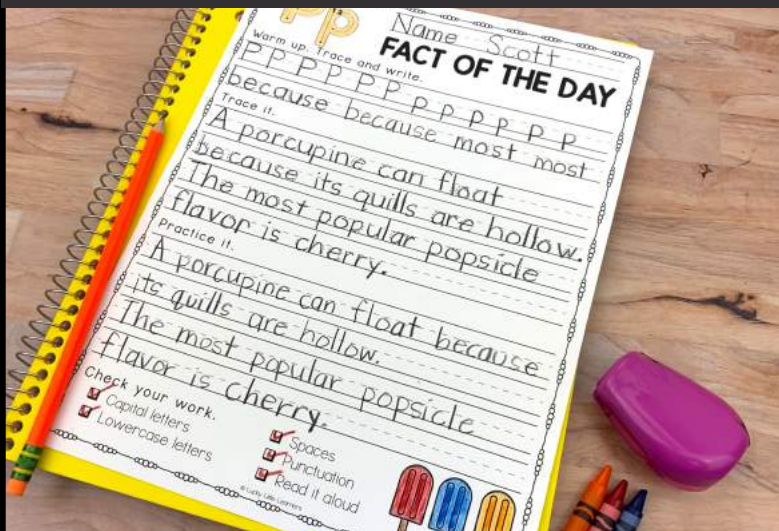 Pp
Name Scott
FACT OF THE DAY
Warm up. Trace and write.
P P P P P P p p p p p p
because because most most
Trace it.
A porcupine can float
because its quills are hollow.
The most popular popsicle
flavor is cherry.
Practice it.
A porcupine can float because
its quills are hollow.
The most popular popsicle
flavor is cherry.
Check your work.
Capital letters
Lowercase letters
Spaces
Punctuation
Read it aloud
© Lucky Little Learners